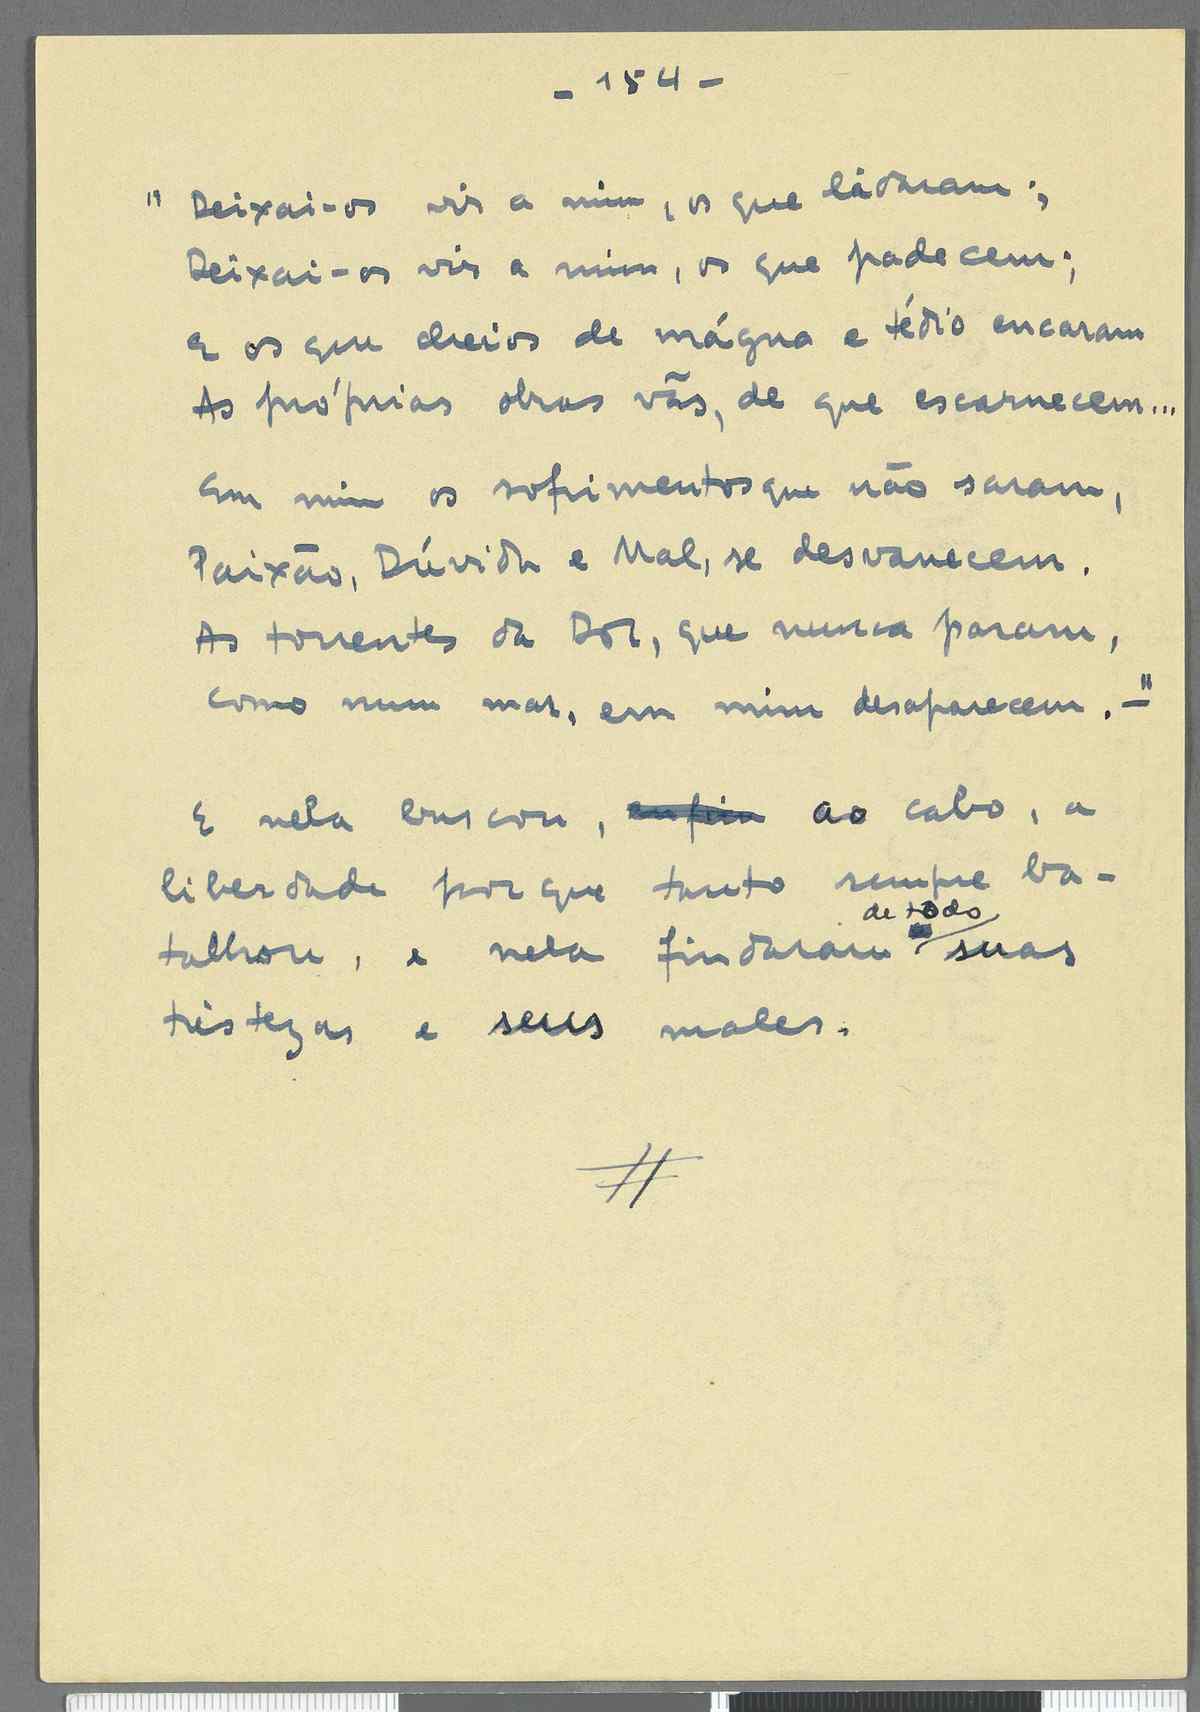 - 154 -
" Deixai-os vir a mim, os que lidaram;
Deixai-os vir a mim, os que padecem;
E os que cheios de mágua e tédio encaram
As próprias obras vãs, de que escarnecem...
Em mim os sofrimentos que não saram,
Paixão, Dúvida e Mal, se desvanecem.
As torrentes da Dor, que nunca param,
Como num mar, em mim desaparecem. - "
E nela buscou, enfim ao cabo, a
liberdade por que tanto sempre ba-
de todo
talhou, e nela findaram suas
tristezas e seus males.